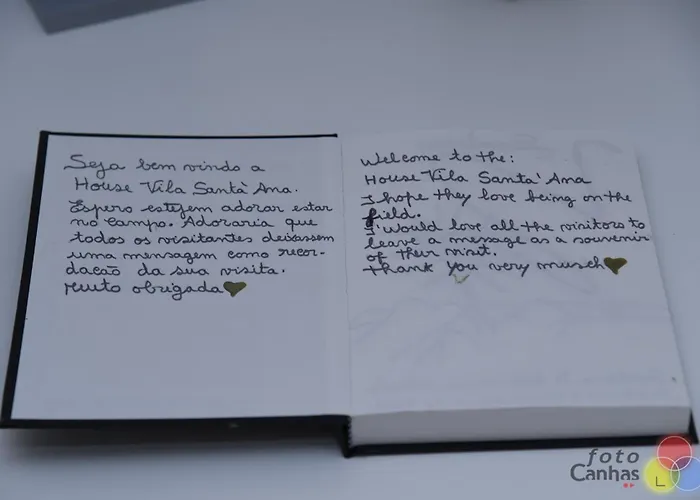 Seja bem vindo a
House Vila Santa' Ana.
Espero estejem adorar estar
no campo. Adoraria que
todos os visitantes deixassem
uma mensagem como recor-
dacão da sua visita.
Muito obrigada
Welcome to the:
House Vila Santa' Ana
I hope they love being on the
field.
I would love all the visitors to
leave a message as a souvenir
of their visit.
thank you very munsch
foto
Canhas